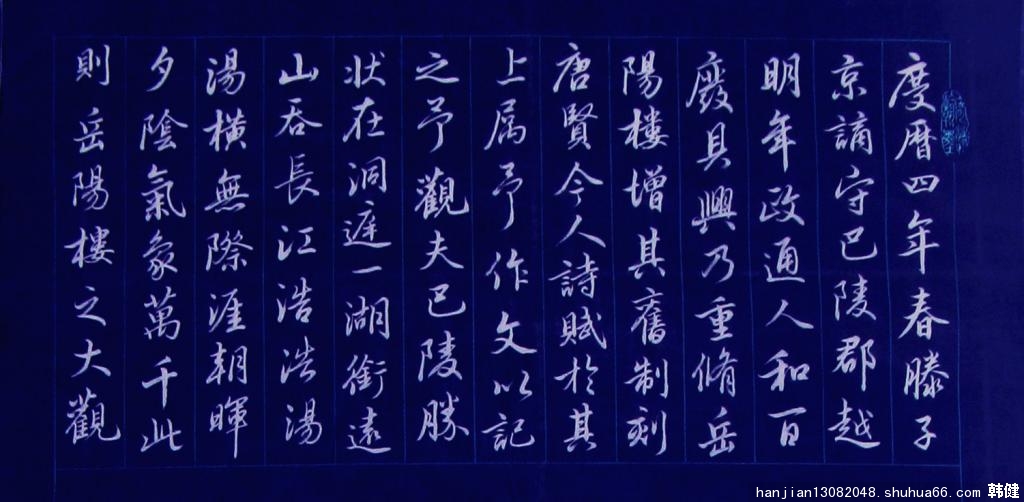 度曆四年春滕子
京謫守巴陵郡越
明年政通人和百
廢具興乃重脩岳
陽樓增其舊制刻
唐賢今人詩賦於其
上属予作文以記
之予觀夫巴陵勝
狀在洞庭一湖銜遠
山吞長江浩浩湯
湯橫無際涯朝暉
夕陰氣象萬千此
則岳陽樓之大觀
hanjian13082048.shuhua66.com 韩健